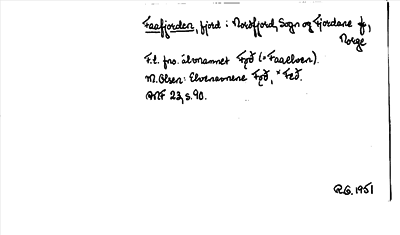 Faafjorden, fjord i Nordfjord, Sogn og Fjordane f.,
Norge
F.l. fno. álvnamnet Fǫð (= Faaelven).
M. Olsen: Elvenavnene Fǫð, *Feð.
ANF 23, s. 90.
R.G. 1951